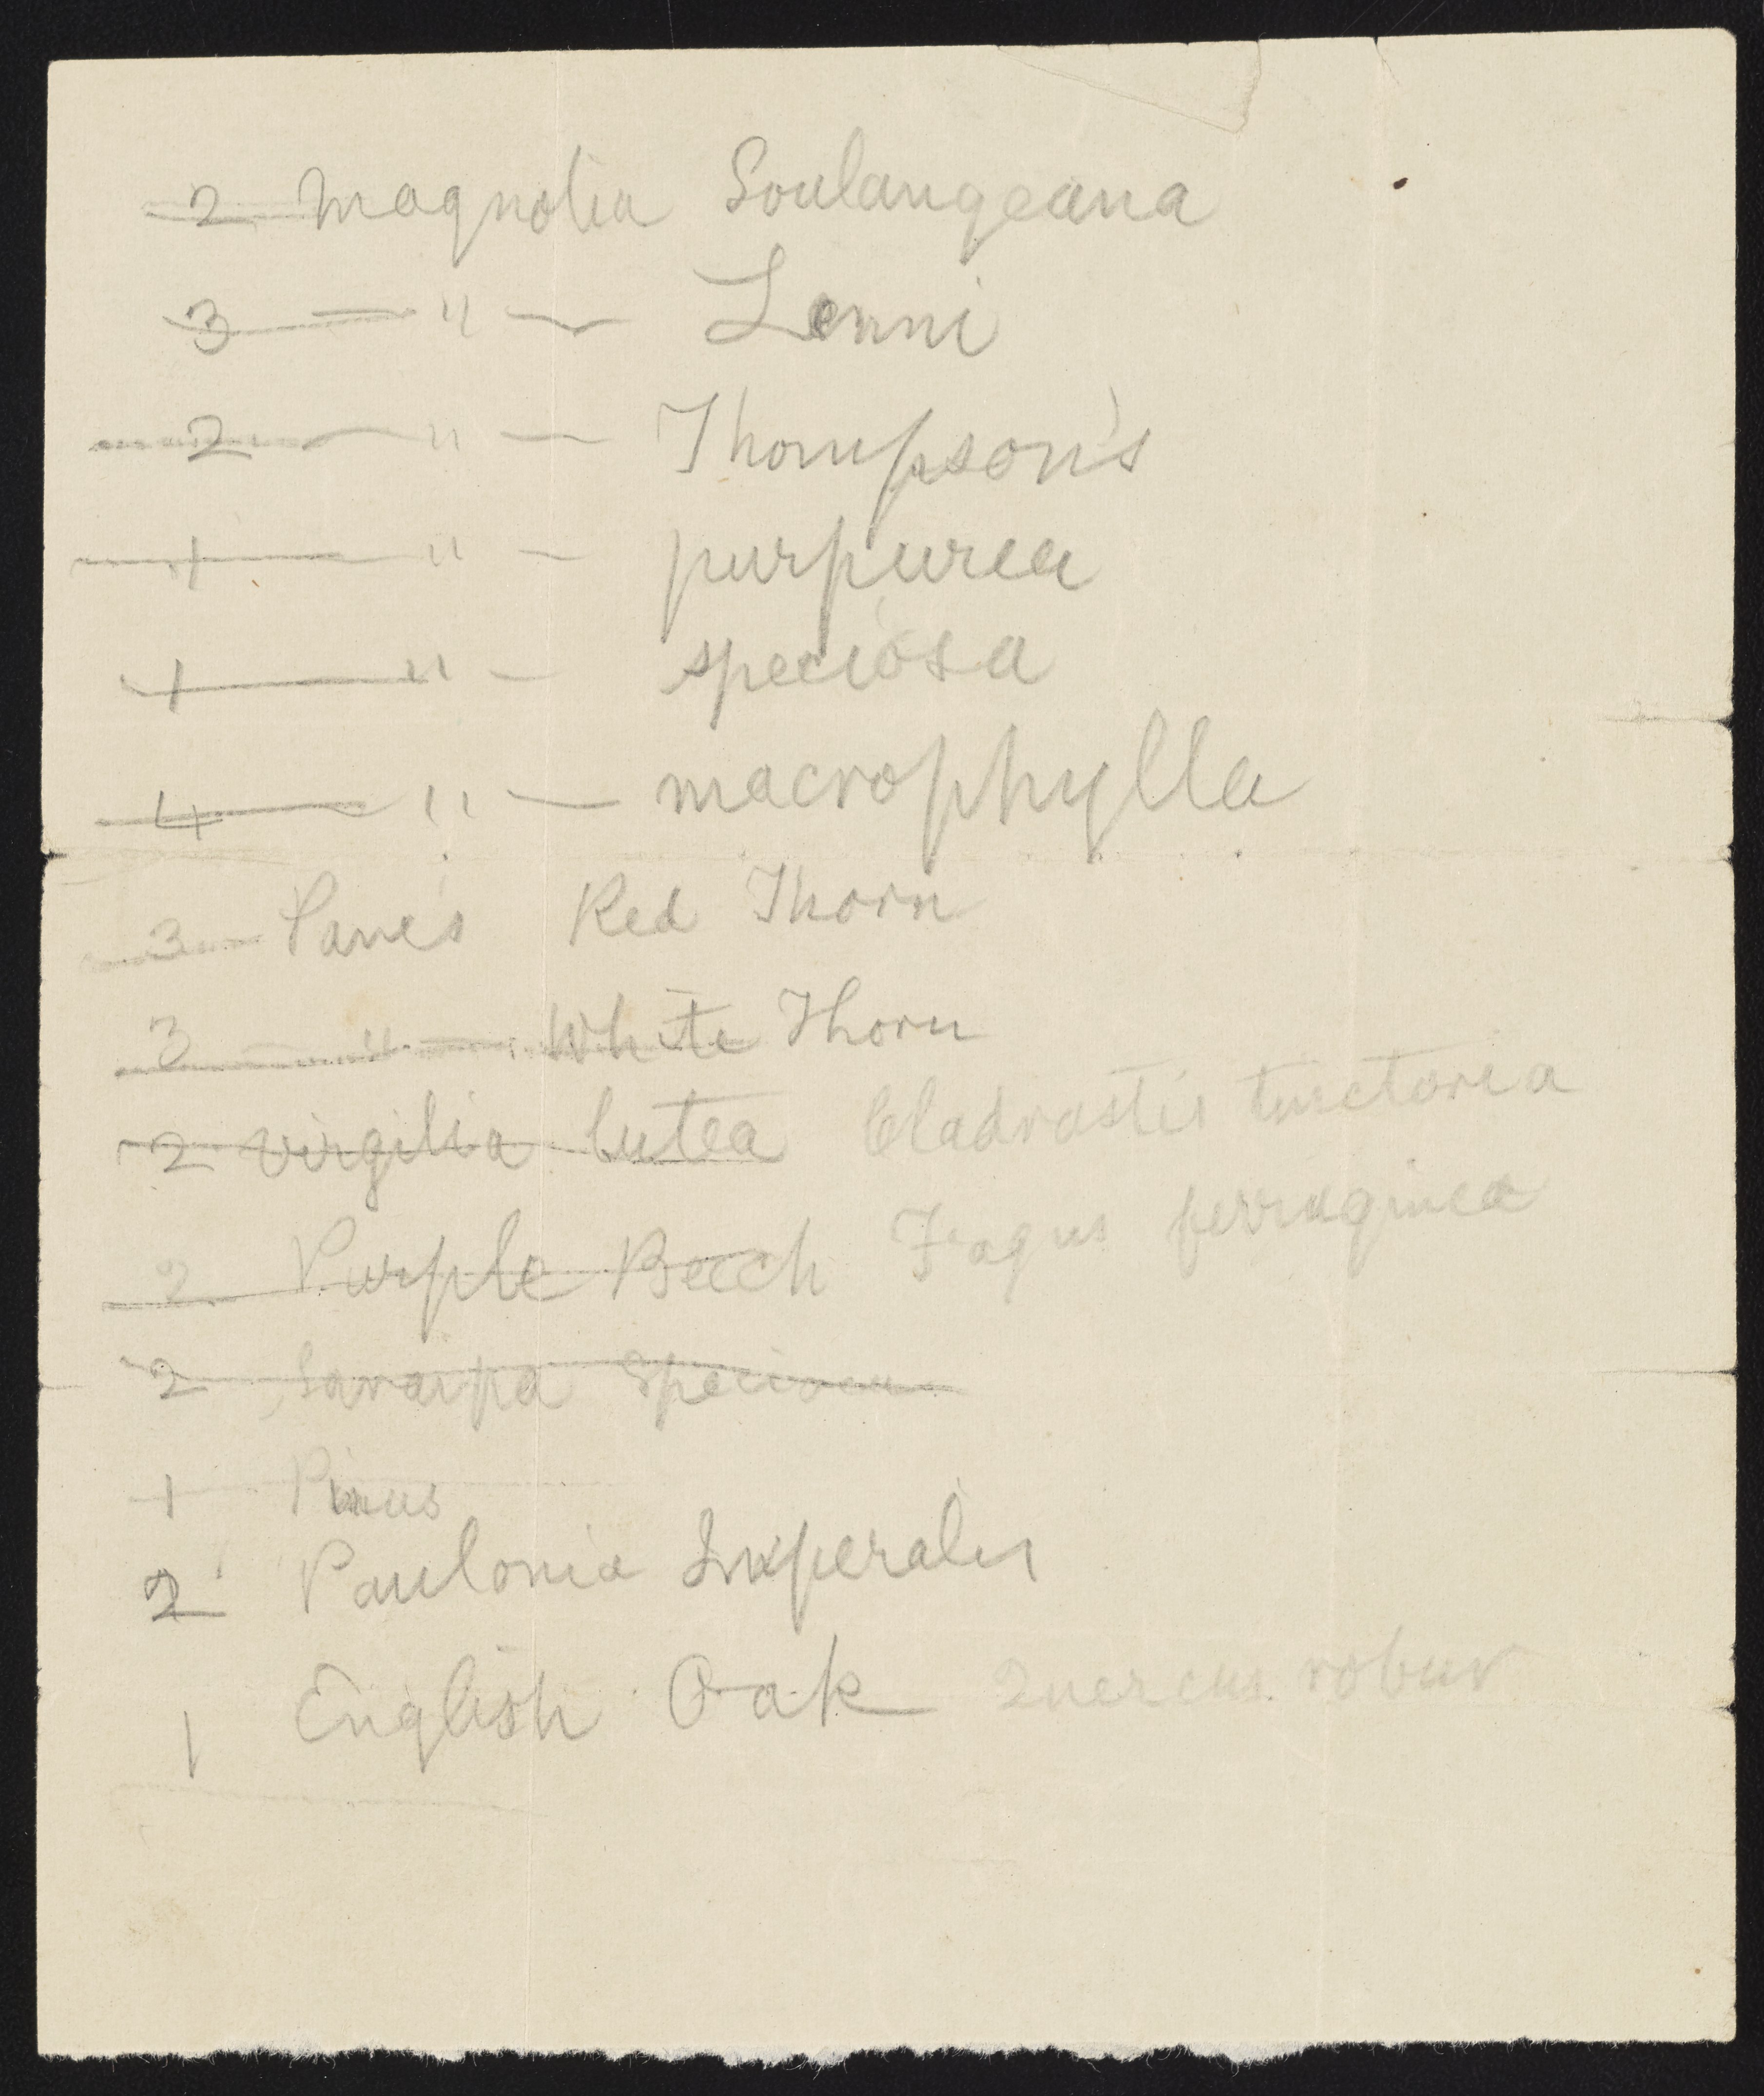 2 Magnolia Soulangeana
3 — " — Lenni
2 — " — Thompson's
1 — " — purpurea
1 — " — speciosa
4 — " — macrophylla
3 Paul's Red Thorn
3 — " — White Thorn
2 Virgilia lutea Cladrastis tinctoria
2 Purple Beech Fagus ferruginea
2
1 Pinus
2 Paulonia Imperalis
1 English Oak Quercus robur